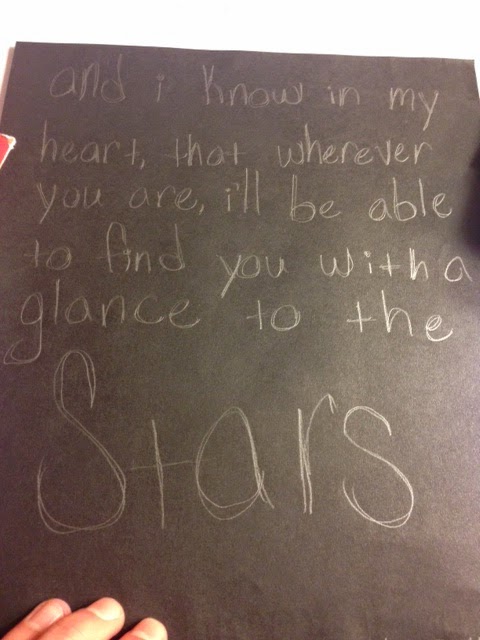 and i know in my
heart, that wherever
you are, i'll be able
to find you with a
glance to the
Stars